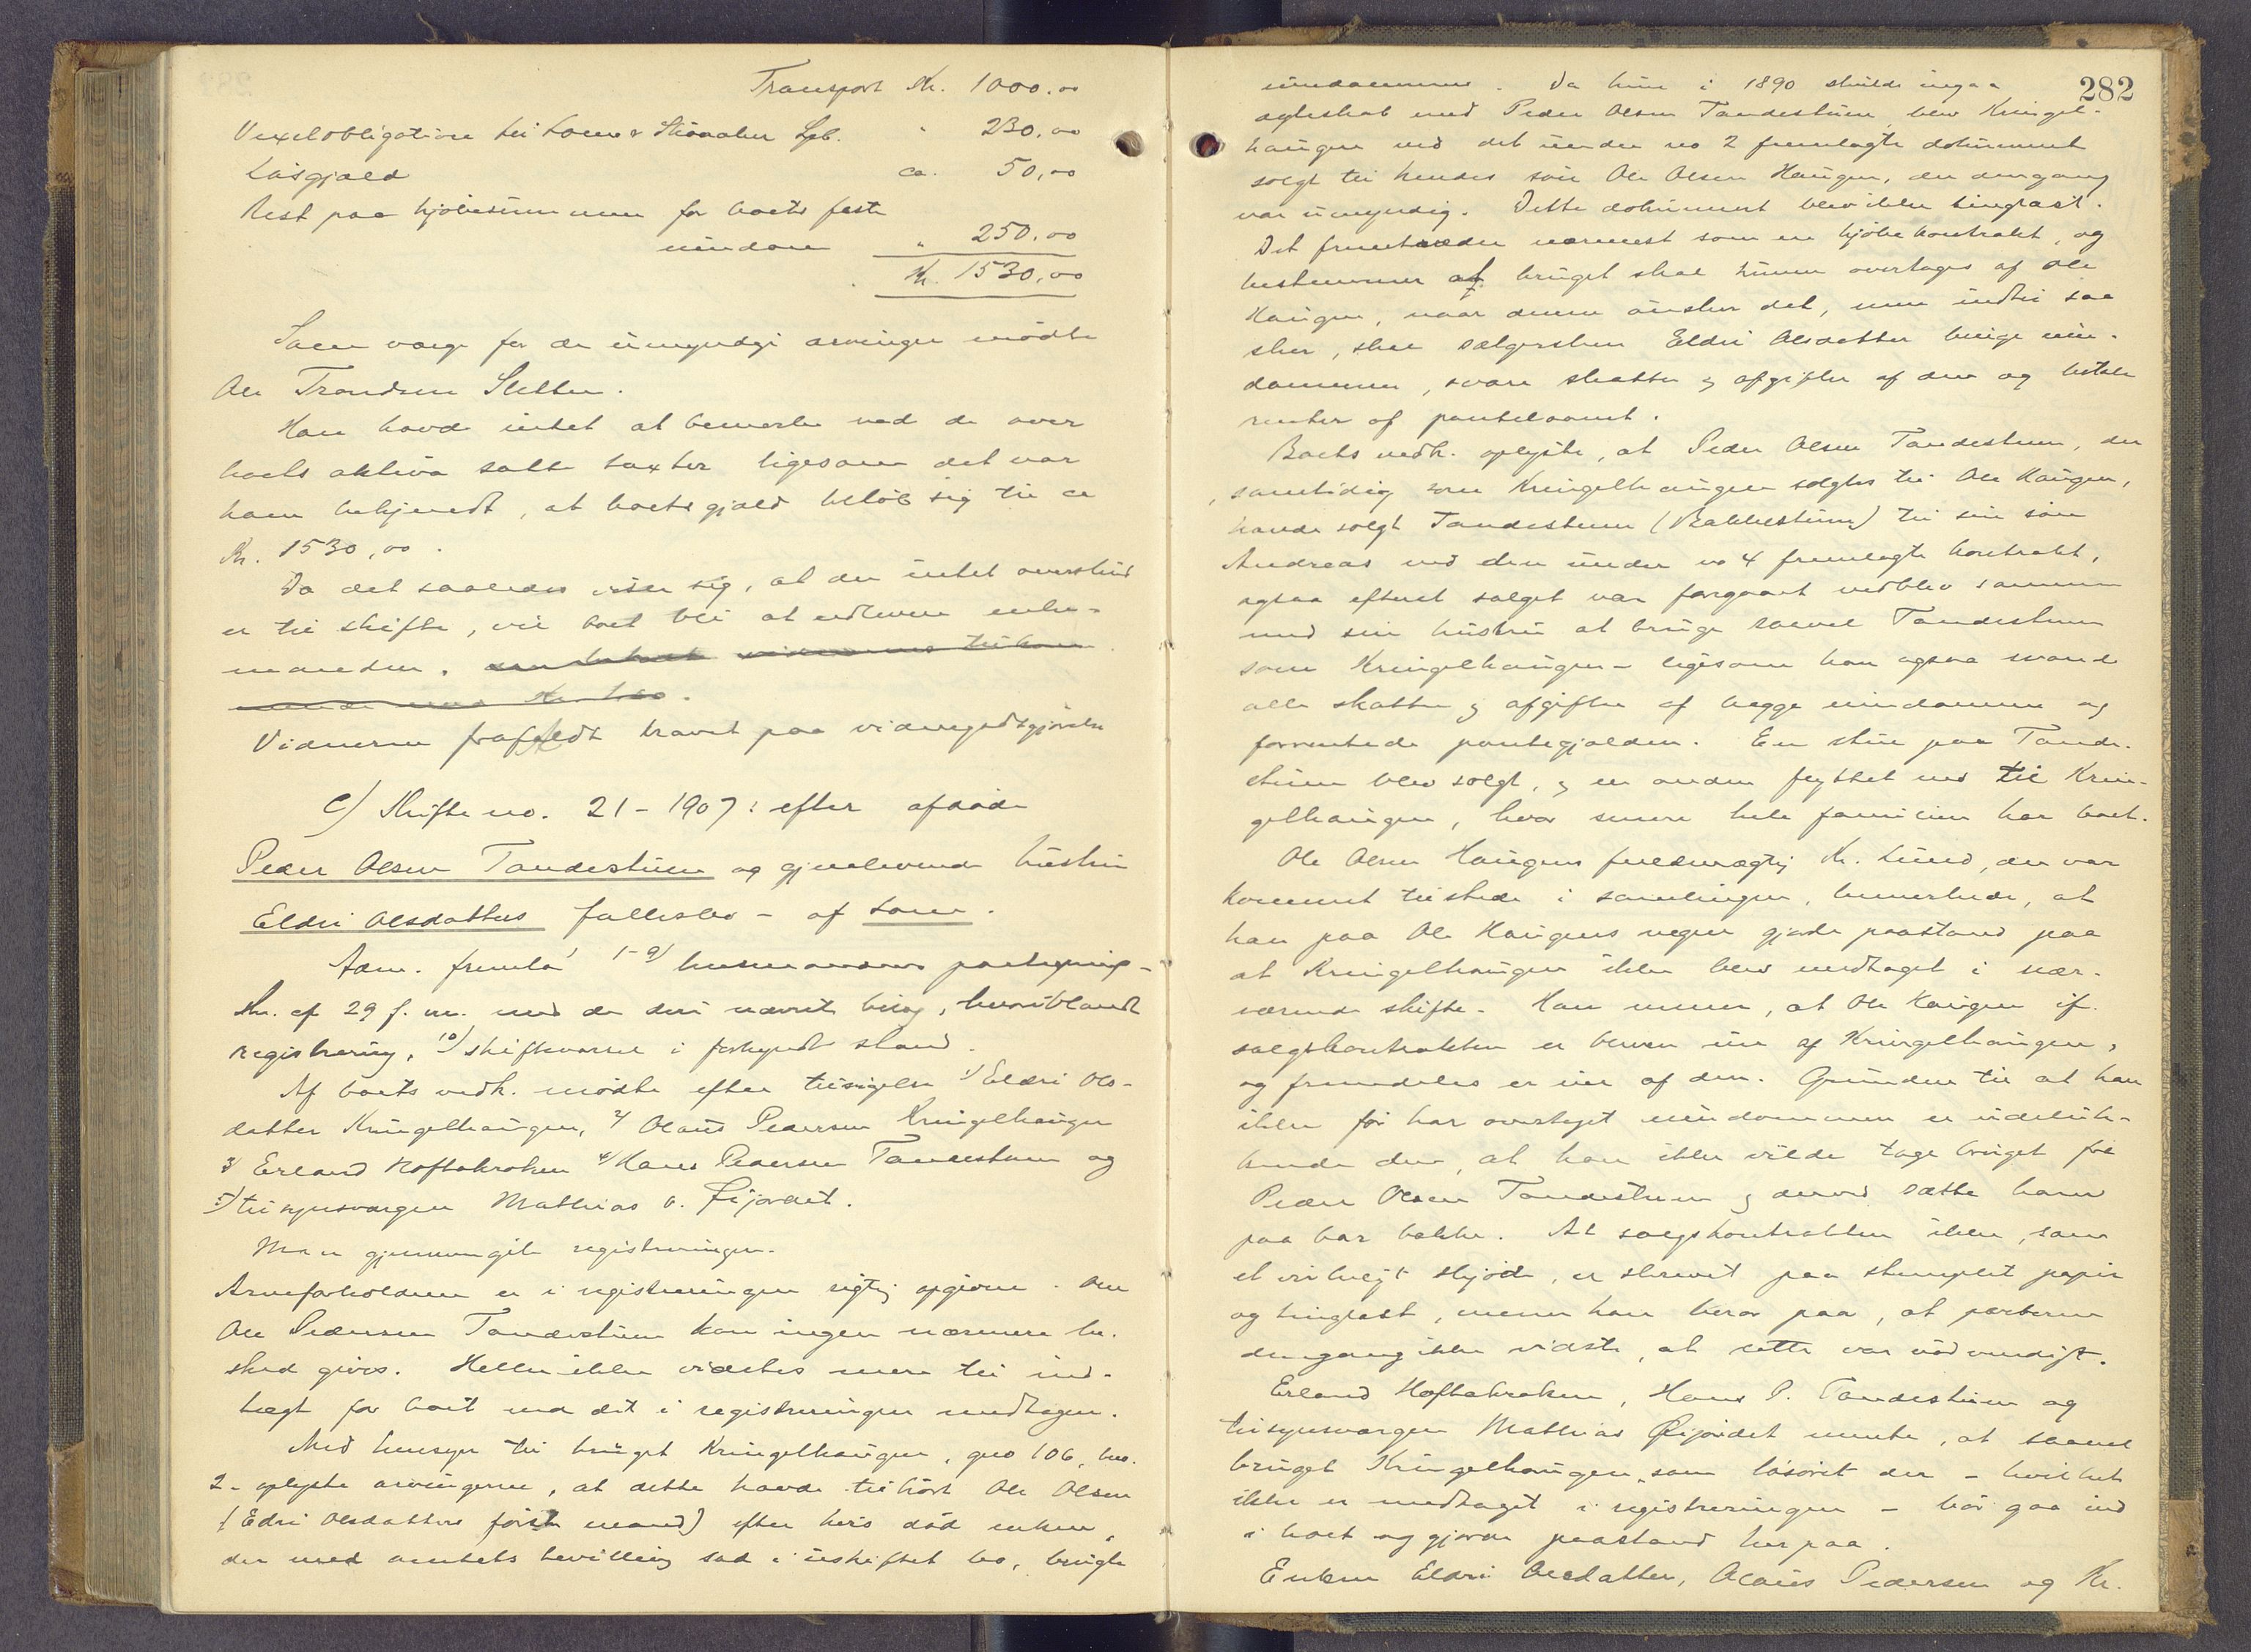 Transport Kr. 1000.00
Vexelobligation til Loms & Skiaaker Spb. " 230,00
Lösgjæld ca. 50,00
Rest paa kjöbesummen for boets faste
eiendom " 250.00
Kr. 1530,00
Som værge for de umyndige arvinger mödte
Ole Trondsen Sletten.
Han havde intet at bemerke ved de over
boets aktiva satte taxter ligesom det var
ham bekjendt, at boets gjæld belöb sig til ca
Kr. 1530,00.
Da det saaledes viser sig, at der intet overskud
er til skifte, vil boet bli at udlevere enke-
manden.
Vidnerne frafaldt kravet paa vidnegodtgjörelse
C) Skifte no. 21-1907: efter afdöde
Peder Olsen Tandestuen og gjenlevende hustru
Eldri Olsdatters fællesbo - af Lom.
Adm. fremla' 1-9) lensmandens paategnings-
skr. af 29 f. m. med de deri nævnte bilag, hvoriblandt
registrering, 10) skiftevarsel i forkyndt stand.
Af boets vedk. mödte efter tilsigelse 1) Eldri Ols-
datter Kringelhaugen, 2) Olaus Pedersen Kringelhaugen
3) Erland Hoftekroken 4) Hans Pedersen Tandestuen og
5) tilsynsværgen Mathias O. Öijordet.
Man gjennemgik registreringen.
Arveforholdene er i registreringen rigtig opgivne. Om
Ole Pedersen Tandestuen kan ingen nærmere be-
sked gives. Heller ikke vidstes mere til ind-
tægt for boet end det i registreringen medtagne.
Med hensyn til bruget Kringelhaugen, gno 106, bno.
2 - oplyste arvingerne, at dette havde tilhört Ole Olsen
(Edri Olsdatters förste mand) efter hvis död enken,
der med amtets bevilling sad i uskiftet bo, brugte
282
eiendommen. Da hun i 1890 skulde indgaa
egteskab med Peder Olsen Tandestuen, blev Kringel-
haugen ved det under no 2 fremlagte dokument
solgt til hendes sön Ole Olsen Haugen, der dengang
var umyndig. Dette dokument blev ikke tinglæst.
Det fremtræder nærmest som en kjöbekontrakt, og
bestemmer at bruget skal kunne overtages af Ole
Haugen, naar denne önsker det, men indtil saa
sker, skal sælgersken Eldri Olsdatter bruge eien-
dommen, svare skatter & afgifter af den og betale
renter af pantelaanet.
Boets vedk. oplyste, at Peder Olsen Tandestuen, der
samtidig som Kringelhaugen solgtes til Ole Haugen,
havde solgt Tandestuen (Bakkestuen) til sin sön
Andreas ved den under no 4 fremlagte kontrakt,
ogsaa efterat salget var foregaaet vedblev sammen
med sin hustru at bruge saavel Tandestuen
som Kringelhaugen - ligesom han ogsaa svarede
alle skatter & afgifter af begge eiendomme og
forrentede pantegjælden. En stue paa Tande-
stuen blev solgt, & en anden flyttet ned til Krin-
gelhaugen, hvor senere hele familien har boet.
Ole Olsen Haugens fuldmægtig Kr. Lund, der var
kommet tilstede i samlingen, bemerkede, at
han paa Ole Haugens vegne gjorde paastand paa
at Kringelhaugen ikke blev medtaget i nær-
værende skifte. Han mener, at Ole Haugen if.
salgskontrakten er bleven eier af Kringelhaugen,
og fremdeles er eier af den. Grunden til at han
ikke för har overtaget eiendommen er udeluk-
kende den, at han ikke vilde tage bruget fra
Peder Olsen Tandestuen & derved sætte ham
paa bar bakke. At salgskontrakten ikke, som
et virkeligt skjöde, er skrevet paa stemplet papir
og tinglæst, mener han beror paa, at parterne
dengang ikke vidste, at dette var nödvendigt.
Erland Hoftekroken, Hans P. Tandestuen og
tilsynsværgen Mathias Öijordet mente, at saavel
bruget Kringelhaugen, som lösöret der - hvilket
ikke er medtaget i registreringen - bör gaa ind
i boet og gjorde paastand herpaa.
Enken Eldri Olsdatter, Olaus Pedersen og Kr.